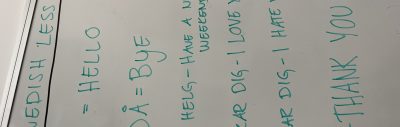 WEDISH LESS
= HELLO
DÅ = BYE
HELG - HAVE A N
WEEKEN
KAR DIG - I LOVE Y
AR DIG - I HATE
- THANK YOU